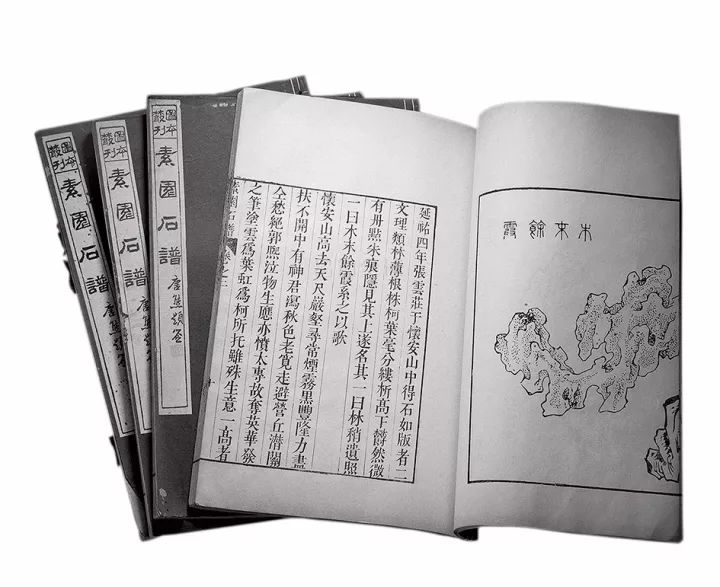 圖本叢刊
素園石譜
圖本叢刊
素園石譜
圖本叢刊
素園石譜
木末餘霞
延祐四年張雲莊于懷安山中得石如版者二
文理類林薄根株柯葉毫分縷析高下欝然微
有丹點朱痕隱見其上遂名其一曰林稍遺照
一曰木末餘霞系之以歌
懷安山高去天尺巖壑尋常煙霧黑豐隆力盡
扶不開中有神君瀉秋色老寬走避營丘潛關
仝愁絕郭熙泣物生應亦憤太專故奪英華發
之筆塗雲爲葉虹爲柯所抚雖殊生意一高者
素園石譜 卷之三